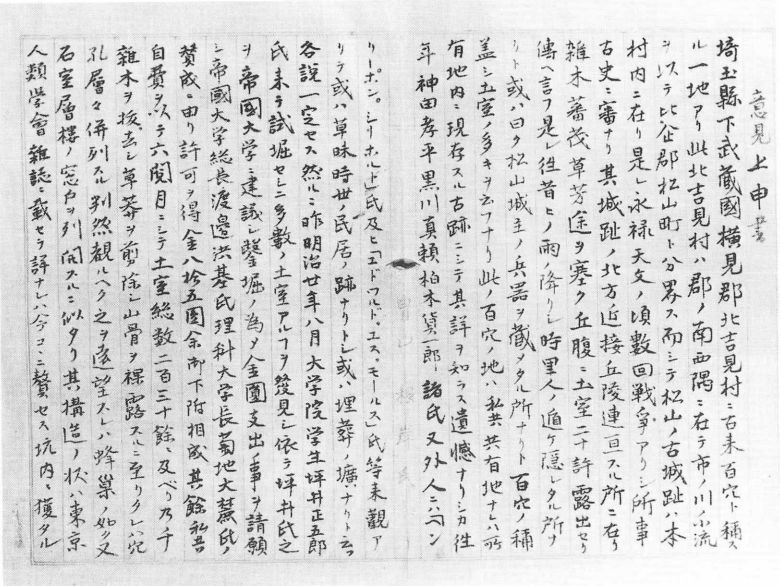 意見上申書
埼玉縣下武蔵國横見郡北吉見村ニ古来百穴ト稱ス
ル一地アリ此北吉見村ハ郡ノ南西隅ニ在テ市ノ川ノ小流
ヲ以テ比企郡松山町ト分界ス而シテ松山ノ古城趾ハ本
村内ニ在リ是レ永禄天文ノ頃数回戦爭アリシ所事
古史ニ審ナリ其城趾ノ北方近接丘陵連亘スル所ニ在リ
雑木蕃茂草芳途ヲ塞ク丘腹ニ土室二十許露出セリ
傳ヘ言フ是レ往昔ヒノ雨ノ降リシ時里人ノ遁ケ隠レタル所ナ
リト或ハ曰ク松山城主ノ兵器ヲ蔵メタル所ナリト百穴ノ稱
盖シ土室ノ多キヲ云フナリ此ノ百穴ノ地ハ私共共有地ナレハ所
有地内ニ現存スル古跡ニシテ其詳ヲ知ラス遺憾ナリシカ往
年神田孝平黒川真頼柏木貨一郎諸氏又外人ニハヘン
リー、ホン。シリホルド」氏及ヒ「エドワルド・エス・モールス」氏等来觀ア
リテ或ハ草昧時世ノ民居ノ跡ナリトシ或ハ埋葬ノ壙ナリト云フ
各説一定セス然ルニ昨明治廿年八月大学院学生坪井正五郎
氏来テ試堀セシニ多数ノ土室アルヲ發見シ依テ坪井氏之
ヲ帝國大学ニ建議シ鑿堀ノ為メ金圓支出ノ事ヲ請願
シ帝國大学総長渡邉洪基氏理科大学長菊地大麓氏ノ
賛成ニ由リ許可ヲ得金八拾五圓余御下附相成其餘私共
自費ヲ以テ六閲月ニシテ土室総数二百三十餘ニ及ベリ乃チ
雜木ヲ抜去シ草莽ヲ剪除シ山骨ヲ裸露スルニ至リタレハ穴
孔層々併列スル判然観ルヘク之ヲ遠望スレハ蜂巣ノ如ク又
石室層樓ノ窓戸ヲ列開スルニ似タリ其構造ノ状ハ東京
人類学會雑誌ニ載セテ詳ナレハ今コヽニ贅セス坑内ニ獲タル